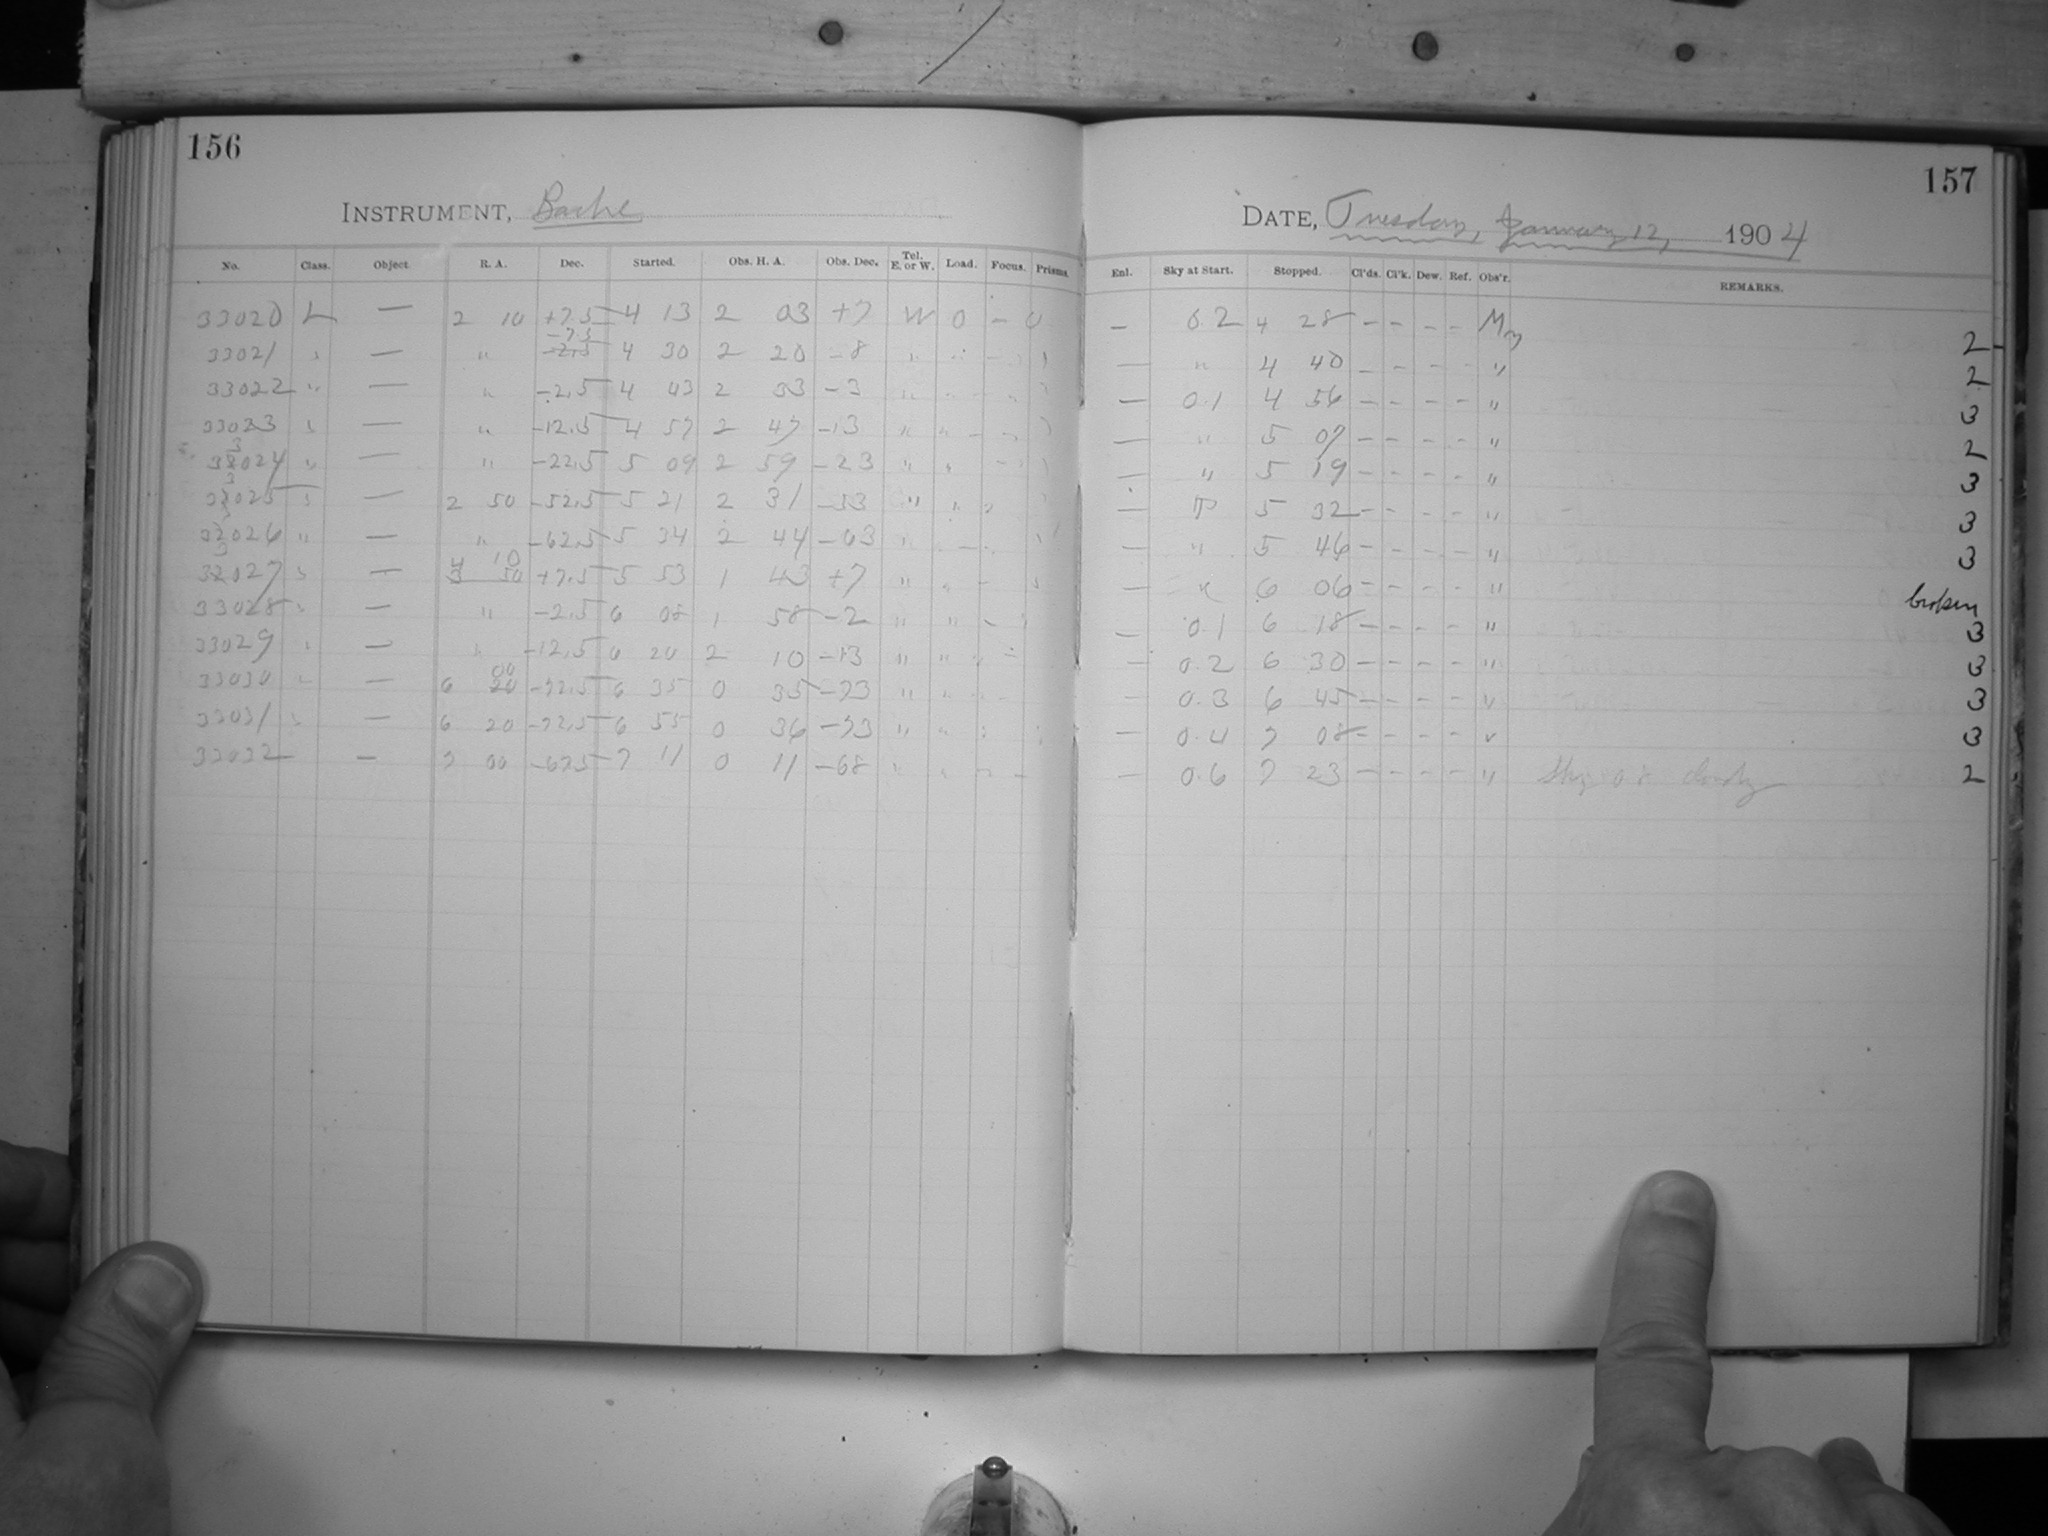 156
INSTRUMENT, Bache
No. Class. Object. R. A. Dec. Started. Obs. H. A. Obs. Dec. Tel. E. or W. Load. Focus. Prisms.
33020 L — 2 10 +7.5 4 13 2 03 +7 W 0 – 0
33021 " — " -7.5 4 30 2 20 -8 "
33022 " — " -2.5 4 43 2 33 -3 "
33023 " — " -12.5 4 57 2 47 -13 " "
33024 " — " -22.5 5 09 2 59 -23 " "
33025 " — 2 50 -52.5 5 21 2 31 -53 " "
33026 " — " -62.5 5 34 2 44 -63 "
33027 " — 4 10 +7.5 5 53 1 43 +7 " "
33028 " — " -2.5 6 08 1 58 -2 " "
33029 " — " -12.5 6 20 2 10 -13 " "
33030 " — 6 00 -72.5 6 35 0 35 -73 " "
33031 " — 6 20 -72.5 6 55 0 36 -73 " "
33032 — 7 00 -67.5 7 11 0 11 -68 " "
157
DATE, Tuesday, January 12, 1904
Enl. Sky at Start. Stopped. Cl'ds. Cl'k. Dew. Ref. Obs'r. REMARKS.
— 0.2 4 28 – – – – 2
— " 4 40 – – – – " 2
— 0.1 4 56 – – – – " 3
— " 5 07 – – – – " 2
— " 5 19 – – – – " 3
— 5 32 – – – – " 3
— " 5 46 – – – – " 3
— " 6 06 – – – – " broken
— 0.1 6 18 – – – – " 3
— 0.2 6 30 – – – – " 3
— 0.3 6 45 – – – – " 3
— 0.4 7 08 – – – – " 3
— 0.6 7 23 – – – – " Sky 0.8 cloudy 2